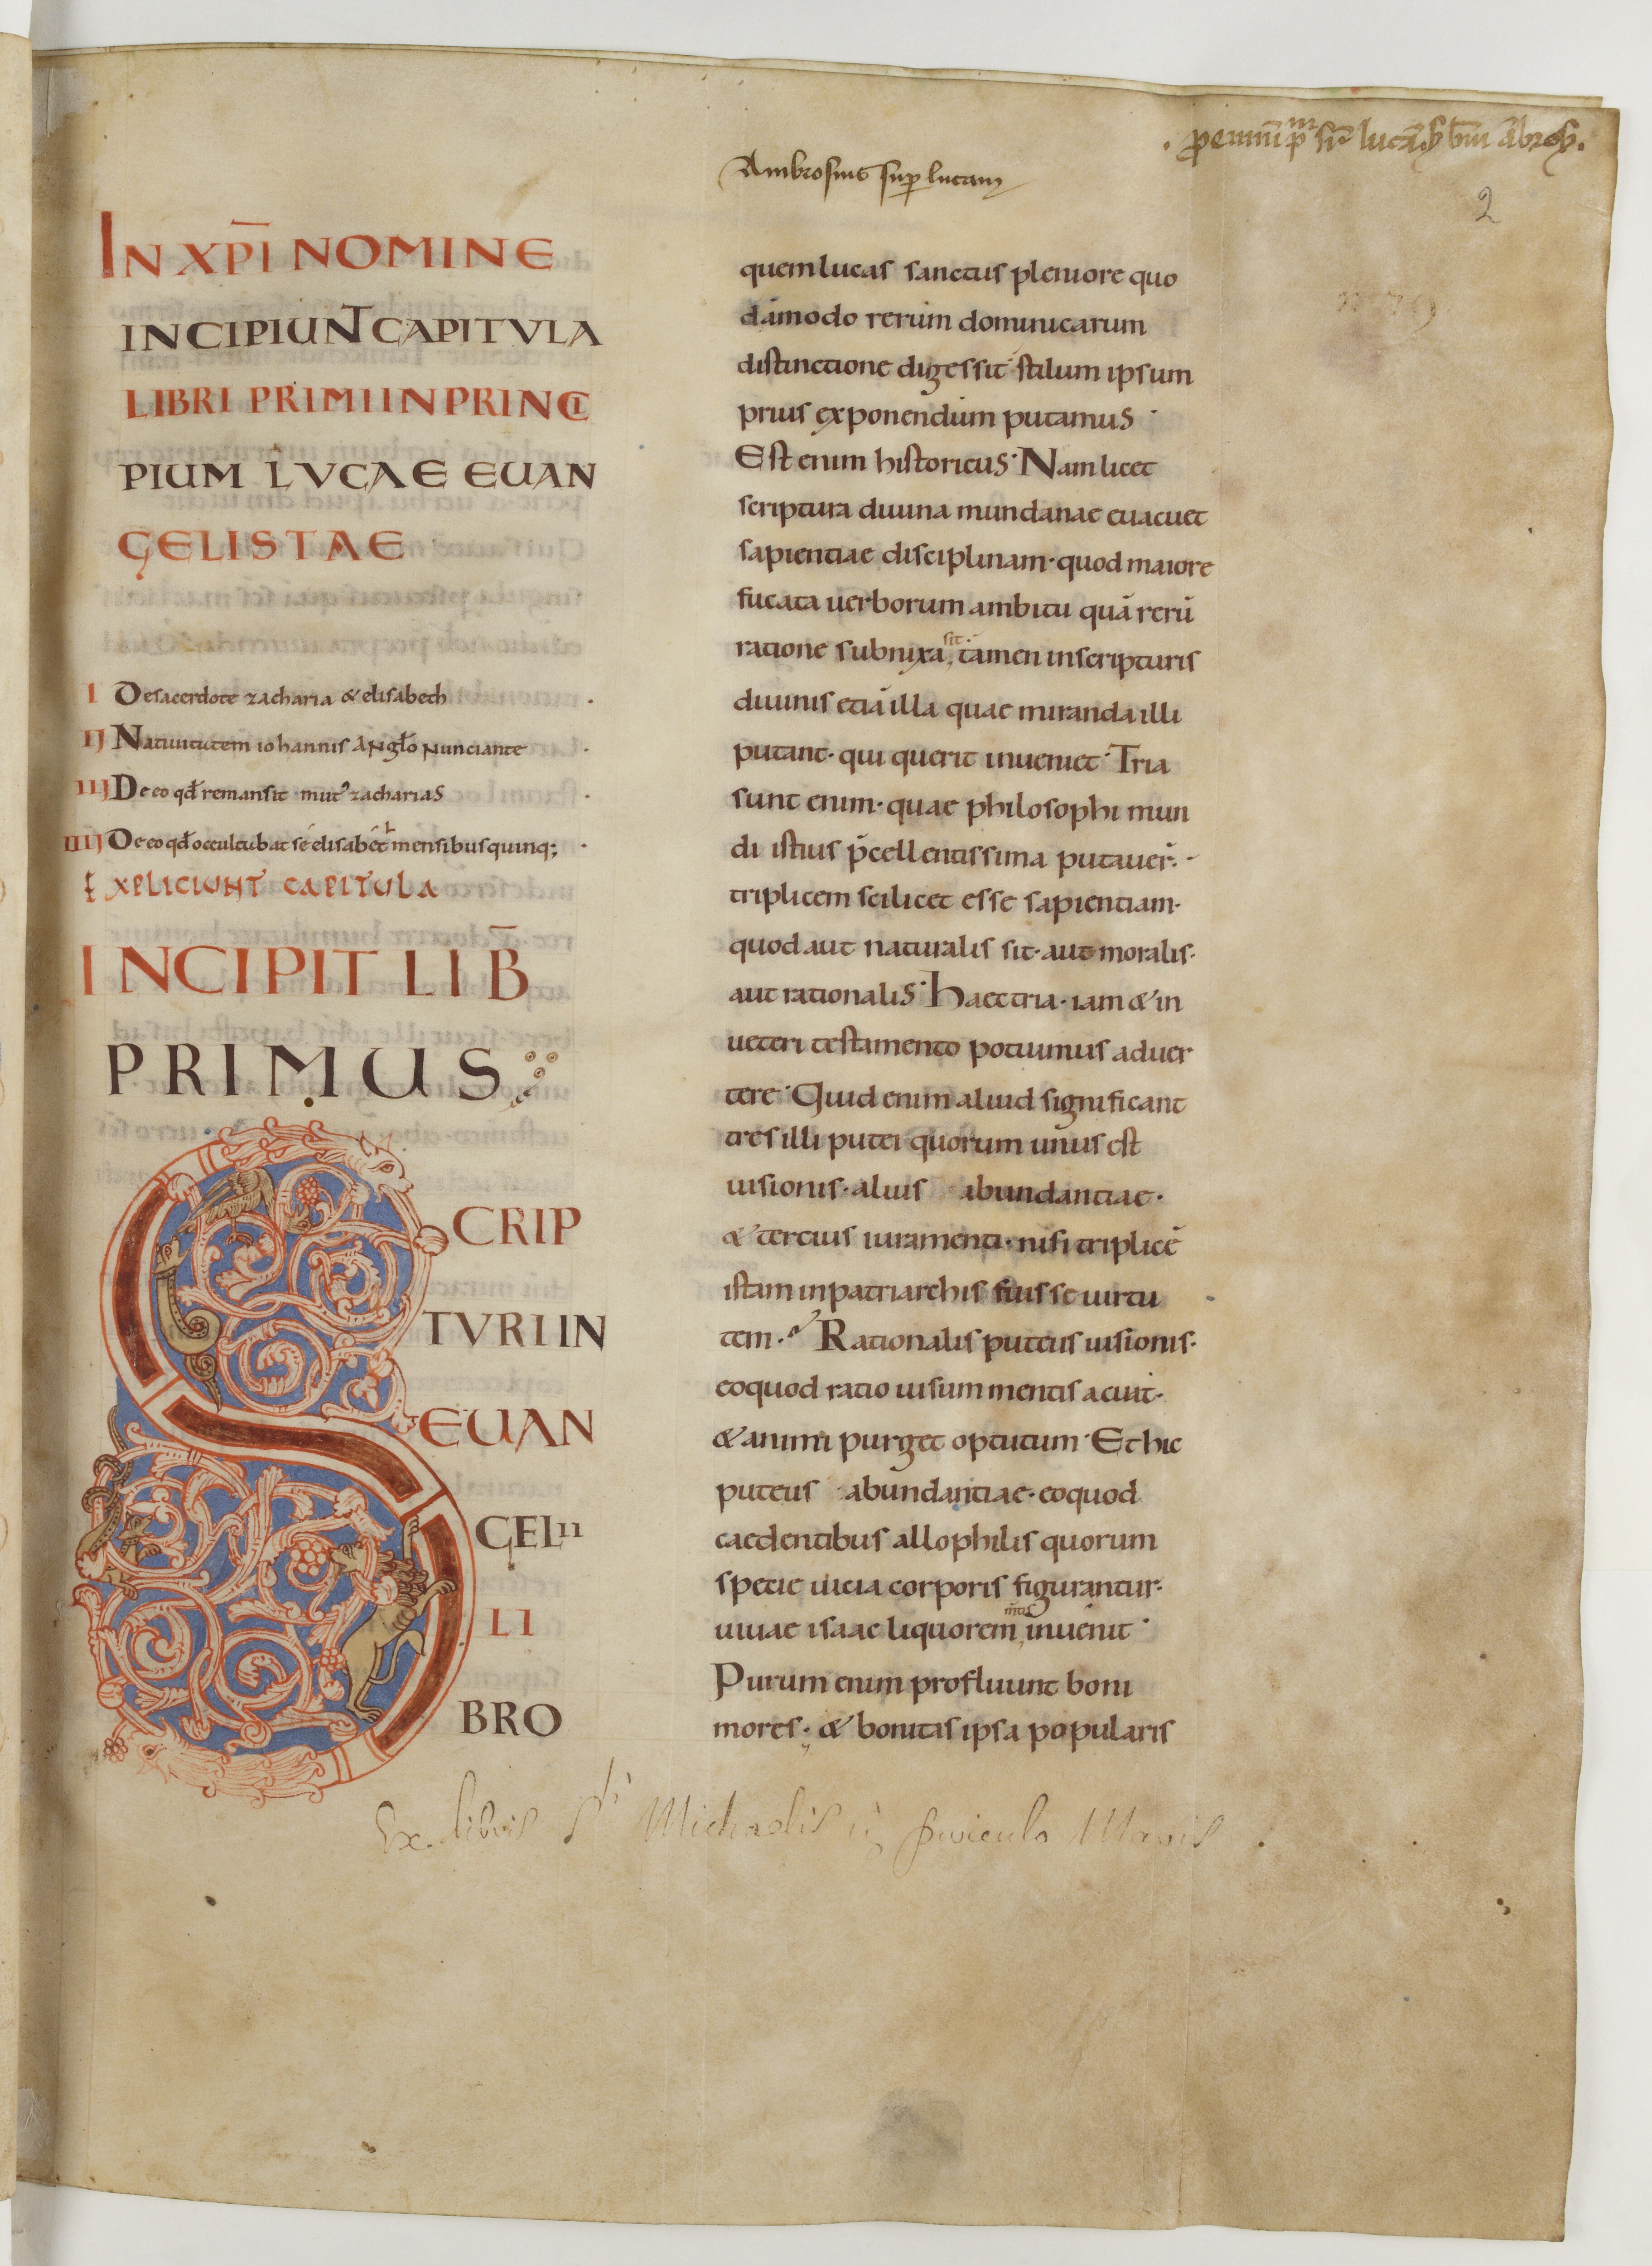 Ambrosius sup lucam
2
IN XP̄I NOMINE
INCIPIUNT CAPITVLA
LIBRI PRIMI IN PRINCI
PIUM LVCAE EUAN
GELISTAE
I De sacerdote zacharia & elisabeth
IJ Natiuitatem iohannis angl̄o nunciante
IIJ De eo qđ remansit mutꝰ zacharias
IIIJ De eo qđ occultabat se elisabét mensibus quinq;
EXPLICIUNT CAPITULA
INCIPIT LIB̄
PRIMUS
SCRIP
TVRI IN
EUAN
GELII
LI
BRO
quem lucas sanctus pleniore quo
dāmodo rerum dominicarum
distinctione digessit stilum ipsum
prius exponendum putamus
Est enim historicus· Nam licet
scriptura diuina mundanae euacuet
sapientiae disciplinam· quod maiore
fucata uerborum ambitu quā rerū
ratione subnixa sit· tamen in scripturis
diuinis etiā illa quae miranda illi
putant· qui querit inueniet· Tria
sunt enim· quae philosophi mun
di istius p̄cellentissima putauer̄·
triplicem scilicet esse sapientiam·
quod aut naturalis sit· aut moralis·
aut rationalis· Haec tria· iam & in
ueteri testamento potiumus aduer
tere· Quid enim aliud significant
tres illi putei quorum unus est
uisionis· alius abundantiae·
& tercius iuramenti· nisi triplicē
istam in patriarchis fuisse uirtu
tem· Rationalis puteus uisionis·
eo quod ratio uisum mentis acuat·
& animi purget optutum· Ethic
puteus abundantiae· eo quod
caedentibus allophilis quorum
specie uicia corporis figurantur·
uiuae isaac liquorem m̄tis inuenit·
Purum enim profluunt boni
mores· & bonitas ipsa popularis
Ex libris Sti Michaelis in periculo Maris